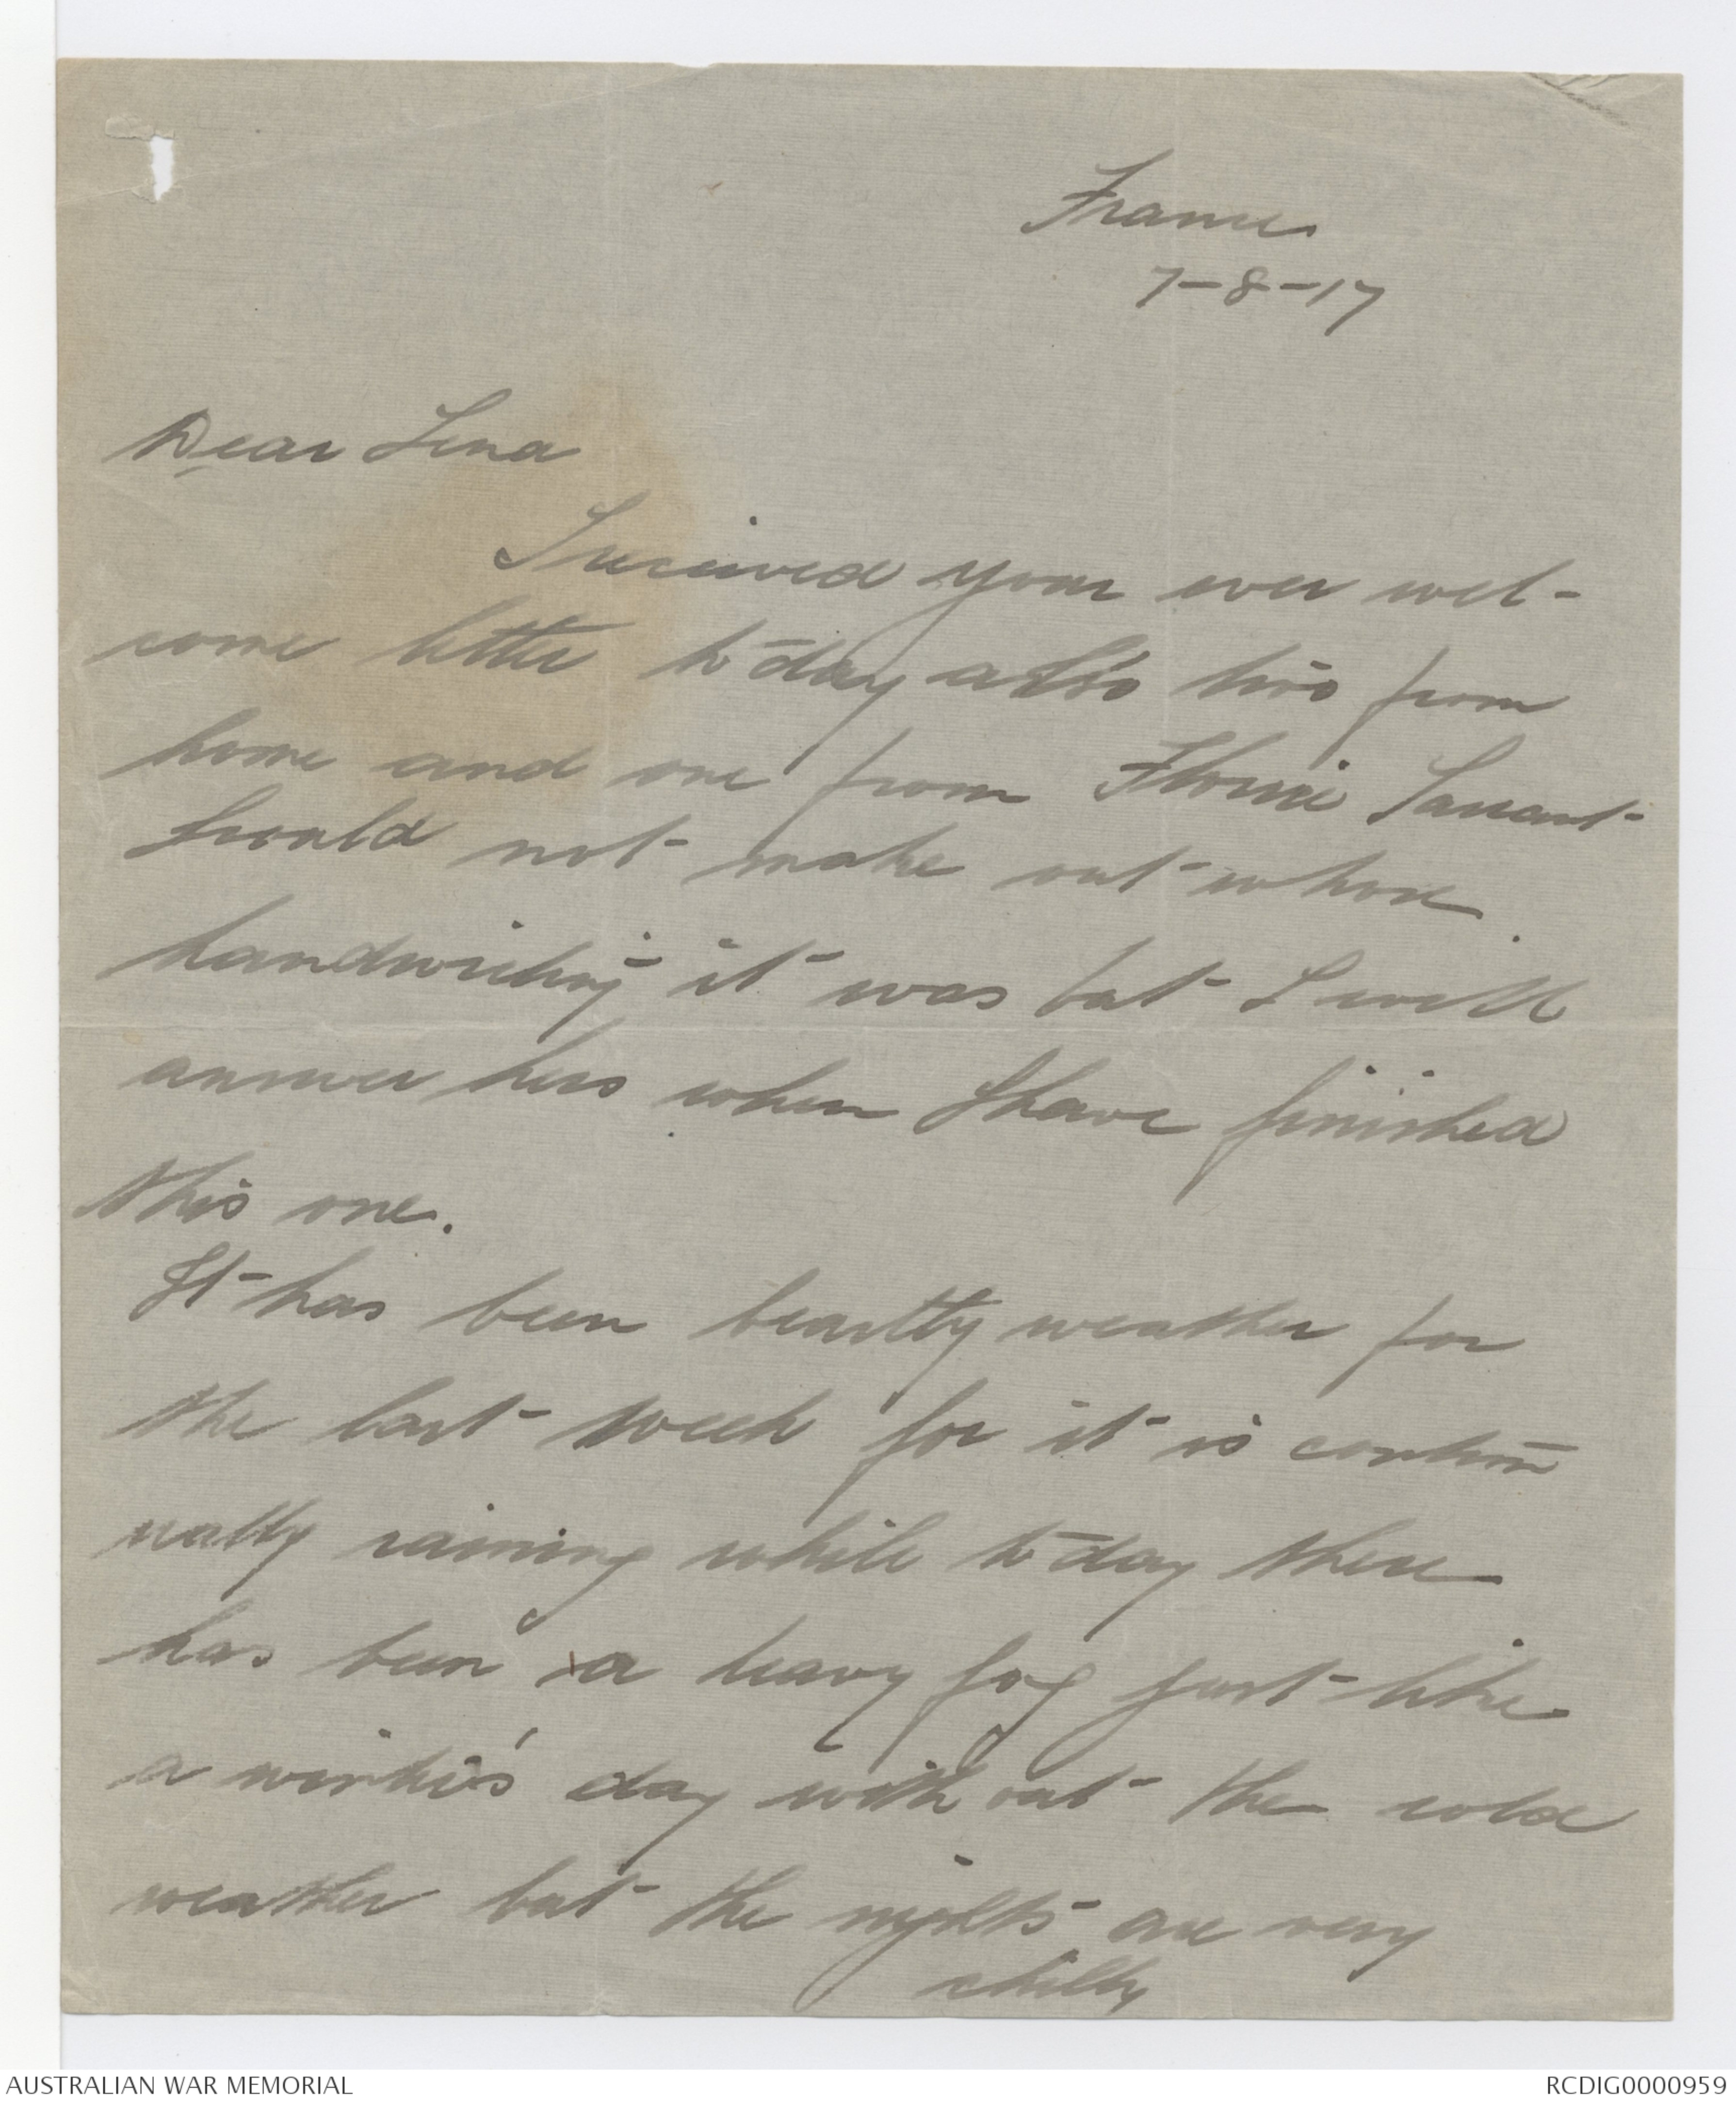 France
7-8-17
Dear Lena
I received your ever wel-
come letter to day also two from
home and one from Florrie Tarrant
I could not make out whose
handwriting it was but I will
answer hers when I have finished
this one.
It has been beastly weather for
the last week for it is contin
ually raining while to day there
has been a heavy fog just like
a winter's day with out the cold
weather but the nights are very
chilly
AUSTRALIAN WAR MEMORIAL
RCDIG0000959